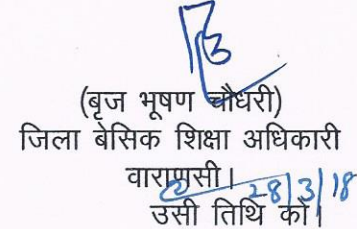 (बृज भूषण चौधरी)
जिला बेसिक शिक्षा अधिकारी
वाराणसी।
28/3/18
उसी तिथि को।